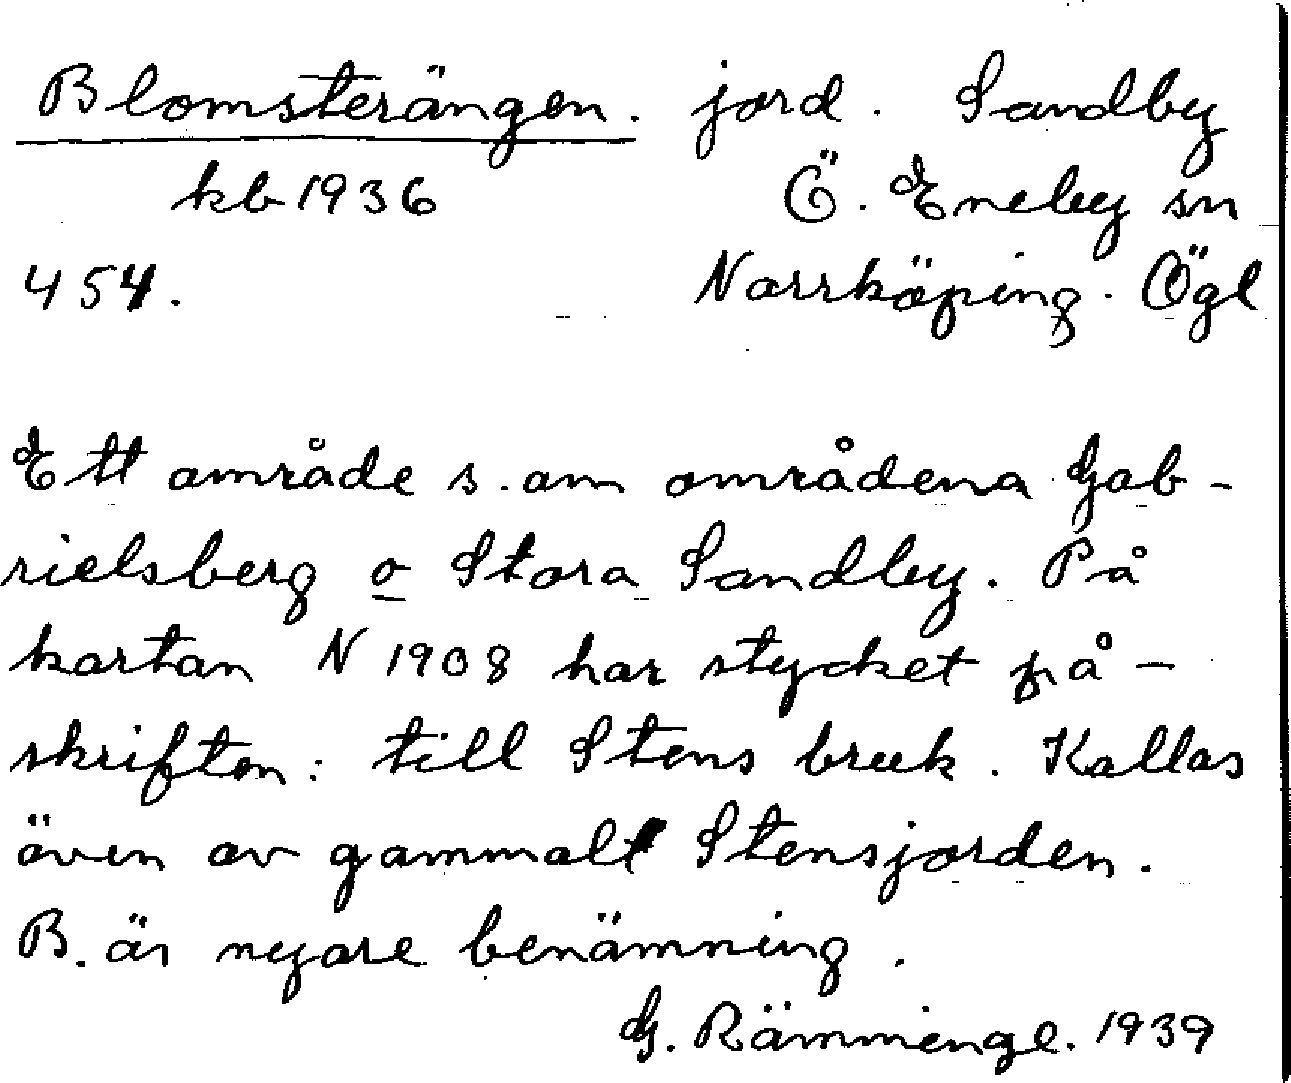 Blomsterängen. jord. Sandby
kb 1936 Ö. Eneby sn
454. Norrköping. Ögl
Ett område s. om områdena Gab-
rielsberg o Stora Sandby. På
kartan N 1908 har stycket på-
skriften: till Stens bruk. Kallas
även av gammalt Stensjorden.
B. är nyare benämning.
G. Rämminge. 1939